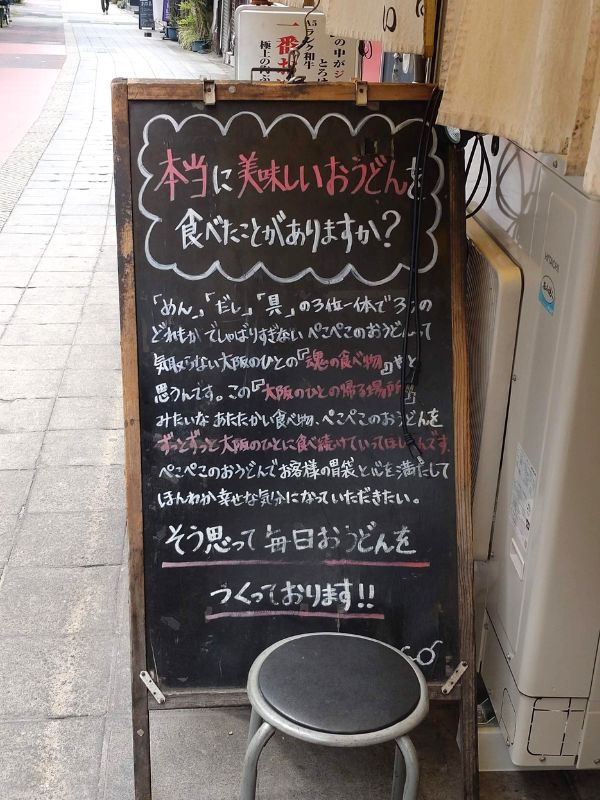 一番
A5ランク和牛
極上の
の中がジ
とろけ
10
本当に美味しいおうどんを
食べたことがありますか?
「めん」、「だし」、「具」の3位一体で3つの
どれもが でしゃばりすぎない ぺこぺこのおうどんって
気取らない大阪のひとの『魂の食べ物』やと
思うんです。この『大阪のひとの帰る場所』
みたいな あたたかい食べ物、ぺこぺこのおうどんを
ずっとずっと大阪のひとに食べ続けていってほしいんです。
ぺこぺこのおうどんでお客様の胃袋と心を満たして
ほんわか幸せな気分になっていただきたい。
そう思って毎日おうどんを
つくっております!!
HITACHI